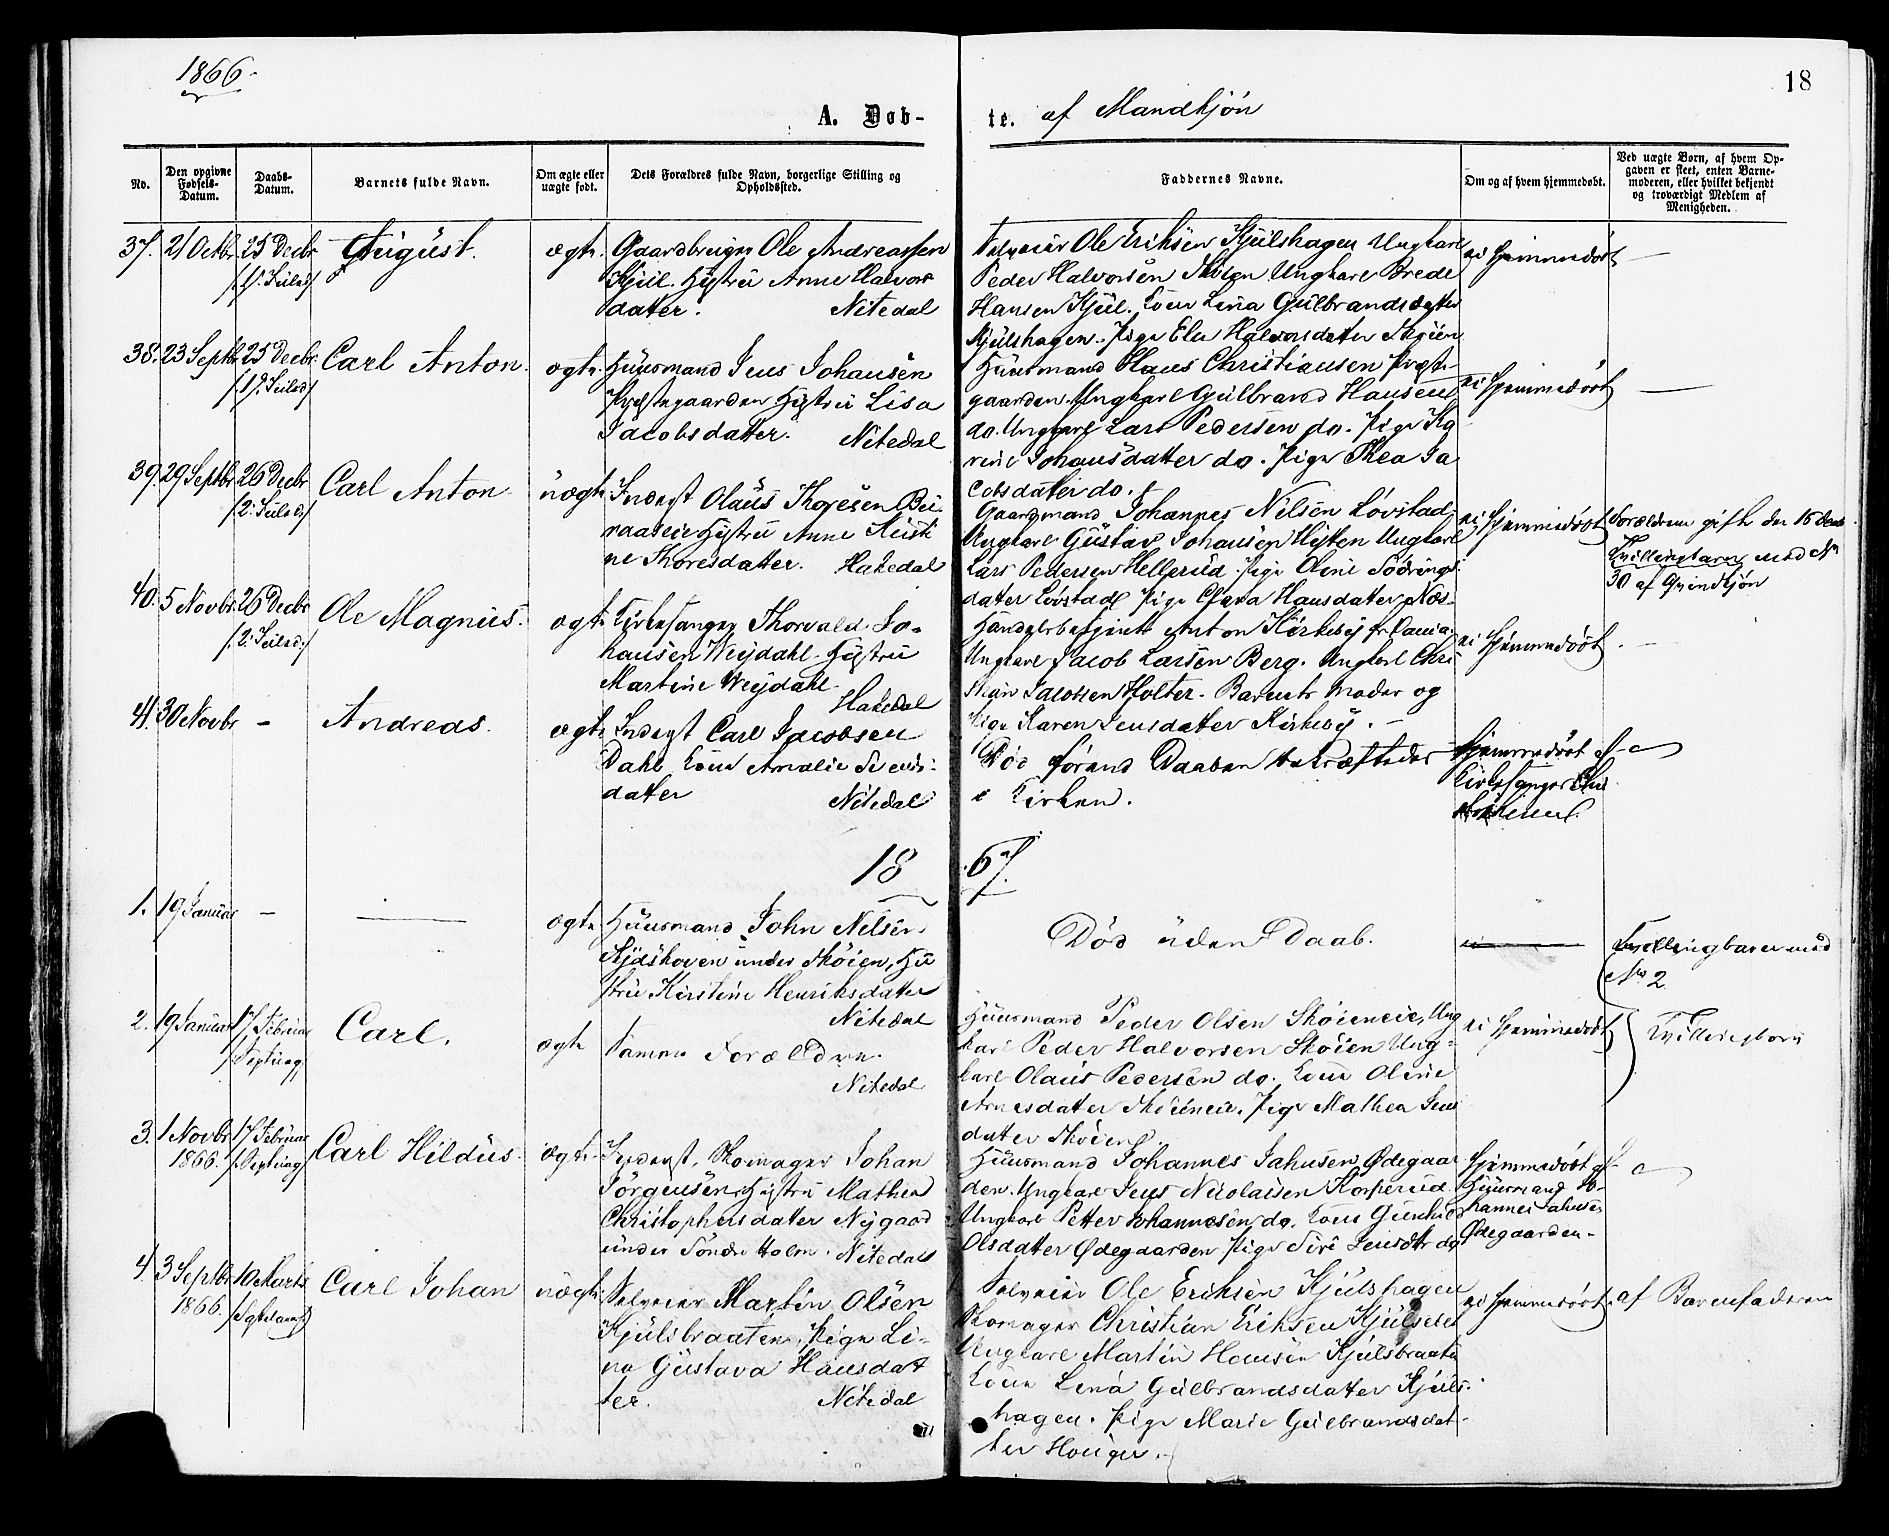 1866.
18
A. Døb-
te. af Mandkjøn
No.
Den opgivne Fødsels-Datum.
Daabs-Datum.
Barnets fulde Navn.
Om ægte eller uægte født.
Dets Forældres fulde Navn, borgerlige Stilling og Opholdssted.
Faddernes Navne.
Om og af hvem hjemmedøbt.
Ved uægte Børn, af hvem Op-
gaven er skeet, enten Barne-
moderen, eller hvilket bekjendt
og troværdigt Medlem af
Menigheden.
37. 21 Octbr. 25 Decbr. August. ægte. Gaardbruger Ole Andreassen
/1ste Juled/
Kjul. Hustru Anne Halvors
datter. Nitedal
Selveier Ole Eriksen Kjulshagen Ungkarl
Peder Halvorsen Skøien Ungkarl Brede
Hansen Kjul. Kone Lina Gulbrandsdatter
Kjulshagen. Pige Elu Halvorsdatter Skøien
ei hjemmedøbt —
38. 23 Septbr. 25 Decbr. Carl Anton. ægte. Huusmand Jens Johansen
/1. Juled/
Præstegaarden Hustru Lisa
Jacobsdatter. Nitedal
Huusmand Hans Christiansen Præste-
gaarden. Ungkarl Gulbrand Hansen
do. Ungkarl Lars Pedersen do. Pige Ka
rine Johansdatter do. Pige Thea Ja
cobsdatter do.
ei hjemmedøbt —
39. 29 Septbr 26 Decbr Carl Anton. uægte Inderst Olaus Thoresen
/2. Juled:/
Hustru Anne Kirsti
ne Thoresdatter. Hakedal
Gaardmand Johannes Nilsen Løvstad
Ungkarl Gustav Johansen Ungkarl
Lars Pedersen Hellerud. Pige Oline
datter Løvstad Pige Clara Hansdatter Næs
ei hjemmedøbt Forældrene gifte den 15 Decbr.
Tvillingbarn med No
30 af Qvindkjøn
40. 5 Novbr. 26 Decbr Ole Magnus. ægte Kirkesanger Thorvald Jo-
/2. Juled:/
hansen Weydahl. Hustru
Martine Weydahl.
Hakedal
Handelsbetjent Anton Kirkeby
Ungkarl Jacob Larsen Berg. Ungkarl Chri
stian Jacobsen Holter. Barnets Moder og
Pige Karen Jensdatter Kirkeby. —
ei hjemmedøbt. —
41. 30 Novbr — Andreas. ægte Inderst Carl Jacobsen
Dahl Kone Amalie Svends-
datter Nitedal
Død førend Daaben bekræftedes
i Kirken.
hjemmedøbt af
Kirkesanger
1867.
1. 19 Januar — — ægte. Huusmand John Nilsen
under Skøien, Hu
stru Kirstine Henriksdatter
Nitedal
Død uden Daab.
Tvillingbarn med
No 2.
2. 19 Januar 17 Februar Carl. ægte Samme Forældre.
/Septuag/
Nitedal
Huusmand Peder Olsen Skøieneie, Ung
karl Peder Halvorsen Skøien Ung-
karl Olaus Pedersen do. Kone Oline
Arnesdatter Skøieneie. Pige Mathea Jens
datter Skøien.
ei hjemmedøbt Tvillingbarn
3. 1 Novbr 17 Februar Carl Hildus. ægte. Inderst, Skomager Johan
1866. /Septuag/
Jørgensen, Hustru Mathea
Christophersdatter Nygaard
under Søndre Holm. Nitedal
Huusmand Johannes Jahnsen Ødegaar
den. Ungkarl Jens Nicolaisen Korperud
Ungkarl Petter Johannesen do. Kone Gunhild
Olsdatter Ødegaarden Pige Siri Jensdtr do
hjemmedøbt af
Huusmand Jo-
hannes Jahnsen
Ødegaarden.
4. 3 Septbr 10 Marts Carl Johan uægte Selveier Martin Olsen
1866.
Kjulsbraaten, Pige Li-
na Gustava Hansdat
ter. Nitedal
Selveier Ole Eriksen Kjulshagen
Skomager Christian Eriksen Kjulseie
Ungkarl Martin Hansen Kjulsbraaten
Kone Lina Gulbrandsdatter Kjuls-
hagen. Pige Marie Gulbrandsdat-
ter Hauger.
ei hjemmedøbt. af Barnefaderen